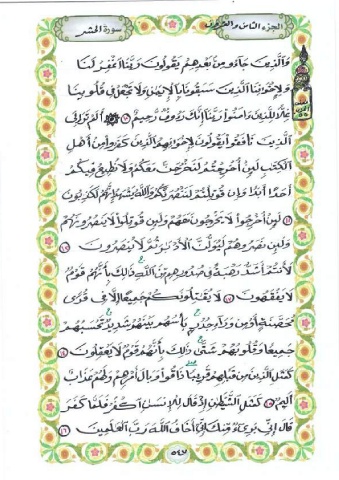 الجزء الثامن والعشرون
سورة الحشر
وَالَّذِينَ جَاءُو مِنْ بَعْدِهِمْ يَقُولُونَ رَبَّنَا اغْفِرْ لَنَا
وَلِإِخْوَانِنَا الَّذِينَ سَبَقُونَا بِالْإِيمَٰنِ وَلَا تَجْعَلْ فِي قُلُوبِنَا
غِلًّا لِلَّذِينَ ءَامَنُوا رَبَّنَا إِنَّكَ رَءُوفٌ رَحِيمٌ ۝ أَلَمْ تَرَ إِلَى
الَّذِينَ نَافَقُوا يَقُولُونَ لِإِخْوَانِهِمُ الَّذِينَ كَفَرُوا مِنْ أَهْلِ
الْكِتَٰبِ لَئِنْ أُخْرِجْتُمْ لَنَخْرُجَنَّ مَعَكُمْ وَلَا نُطِيعُ فِيكُمْ
أَحَدًا أَبَدًا وَإِنْ قُوتِلْتُمْ لَنَنْصُرَنَّكُمْ وَاللَّهُ يَشْهَدُ إِنَّهُمْ لَكَٰذِبُونَ
۝١١ لَئِنْ أُخْرِجُوا لَا يَخْرُجُونَ مَعَهُمْ وَلَئِنْ قُوتِلُوا لَا يَنْصُرُونَهُمْ
وَلَئِنْ نَصَرُوهُمْ لَيُوَلُّنَّ الْأَدْبَٰرَ ثُمَّ لَا يُنْصَرُونَ ۝١٢
لَأَنْتُمْ أَشَدُّ رَهْبَةً فِي صُدُورِهِمْ مِنَ اللَّهِ ذَٰلِكَ بِأَنَّهُمْ قَوْمٌ
لَا يَفْقَهُونَ ۝١٣ لَا يُقَٰتِلُونَكُمْ جَمِيعًا إِلَّا فِي قُرًى
مُحَصَّنَةٍ أَوْ مِنْ وَرَاءِ جُدُرٍ بَأْسُهُمْ بَيْنَهُمْ شَدِيدٌ تَحْسَبُهُمْ
جَمِيعًا وَقُلُوبُهُمْ شَتَّىٰ ذَٰلِكَ بِأَنَّهُمْ قَوْمٌ لَا يَعْقِلُونَ ۝١٤
كَمَثَلِ الَّذِينَ مِنْ قَبْلِهِمْ قَرِيبًا ذَاقُوا وَبَالَ أَمْرِهِمْ وَلَهُمْ عَذَابٌ
أَلِيمٌ ۝١٥ كَمَثَلِ الشَّيْطَٰنِ إِذْ قَالَ لِلْإِنْسَٰنِ اكْفُرْ فَلَمَّا كَفَرَ
قَالَ إِنِّي بَرِيءٌ مِنْكَ إِنِّي أَخَافُ اللَّهَ رَبَّ الْعَٰلَمِينَ ۝١٦
٥٤٧